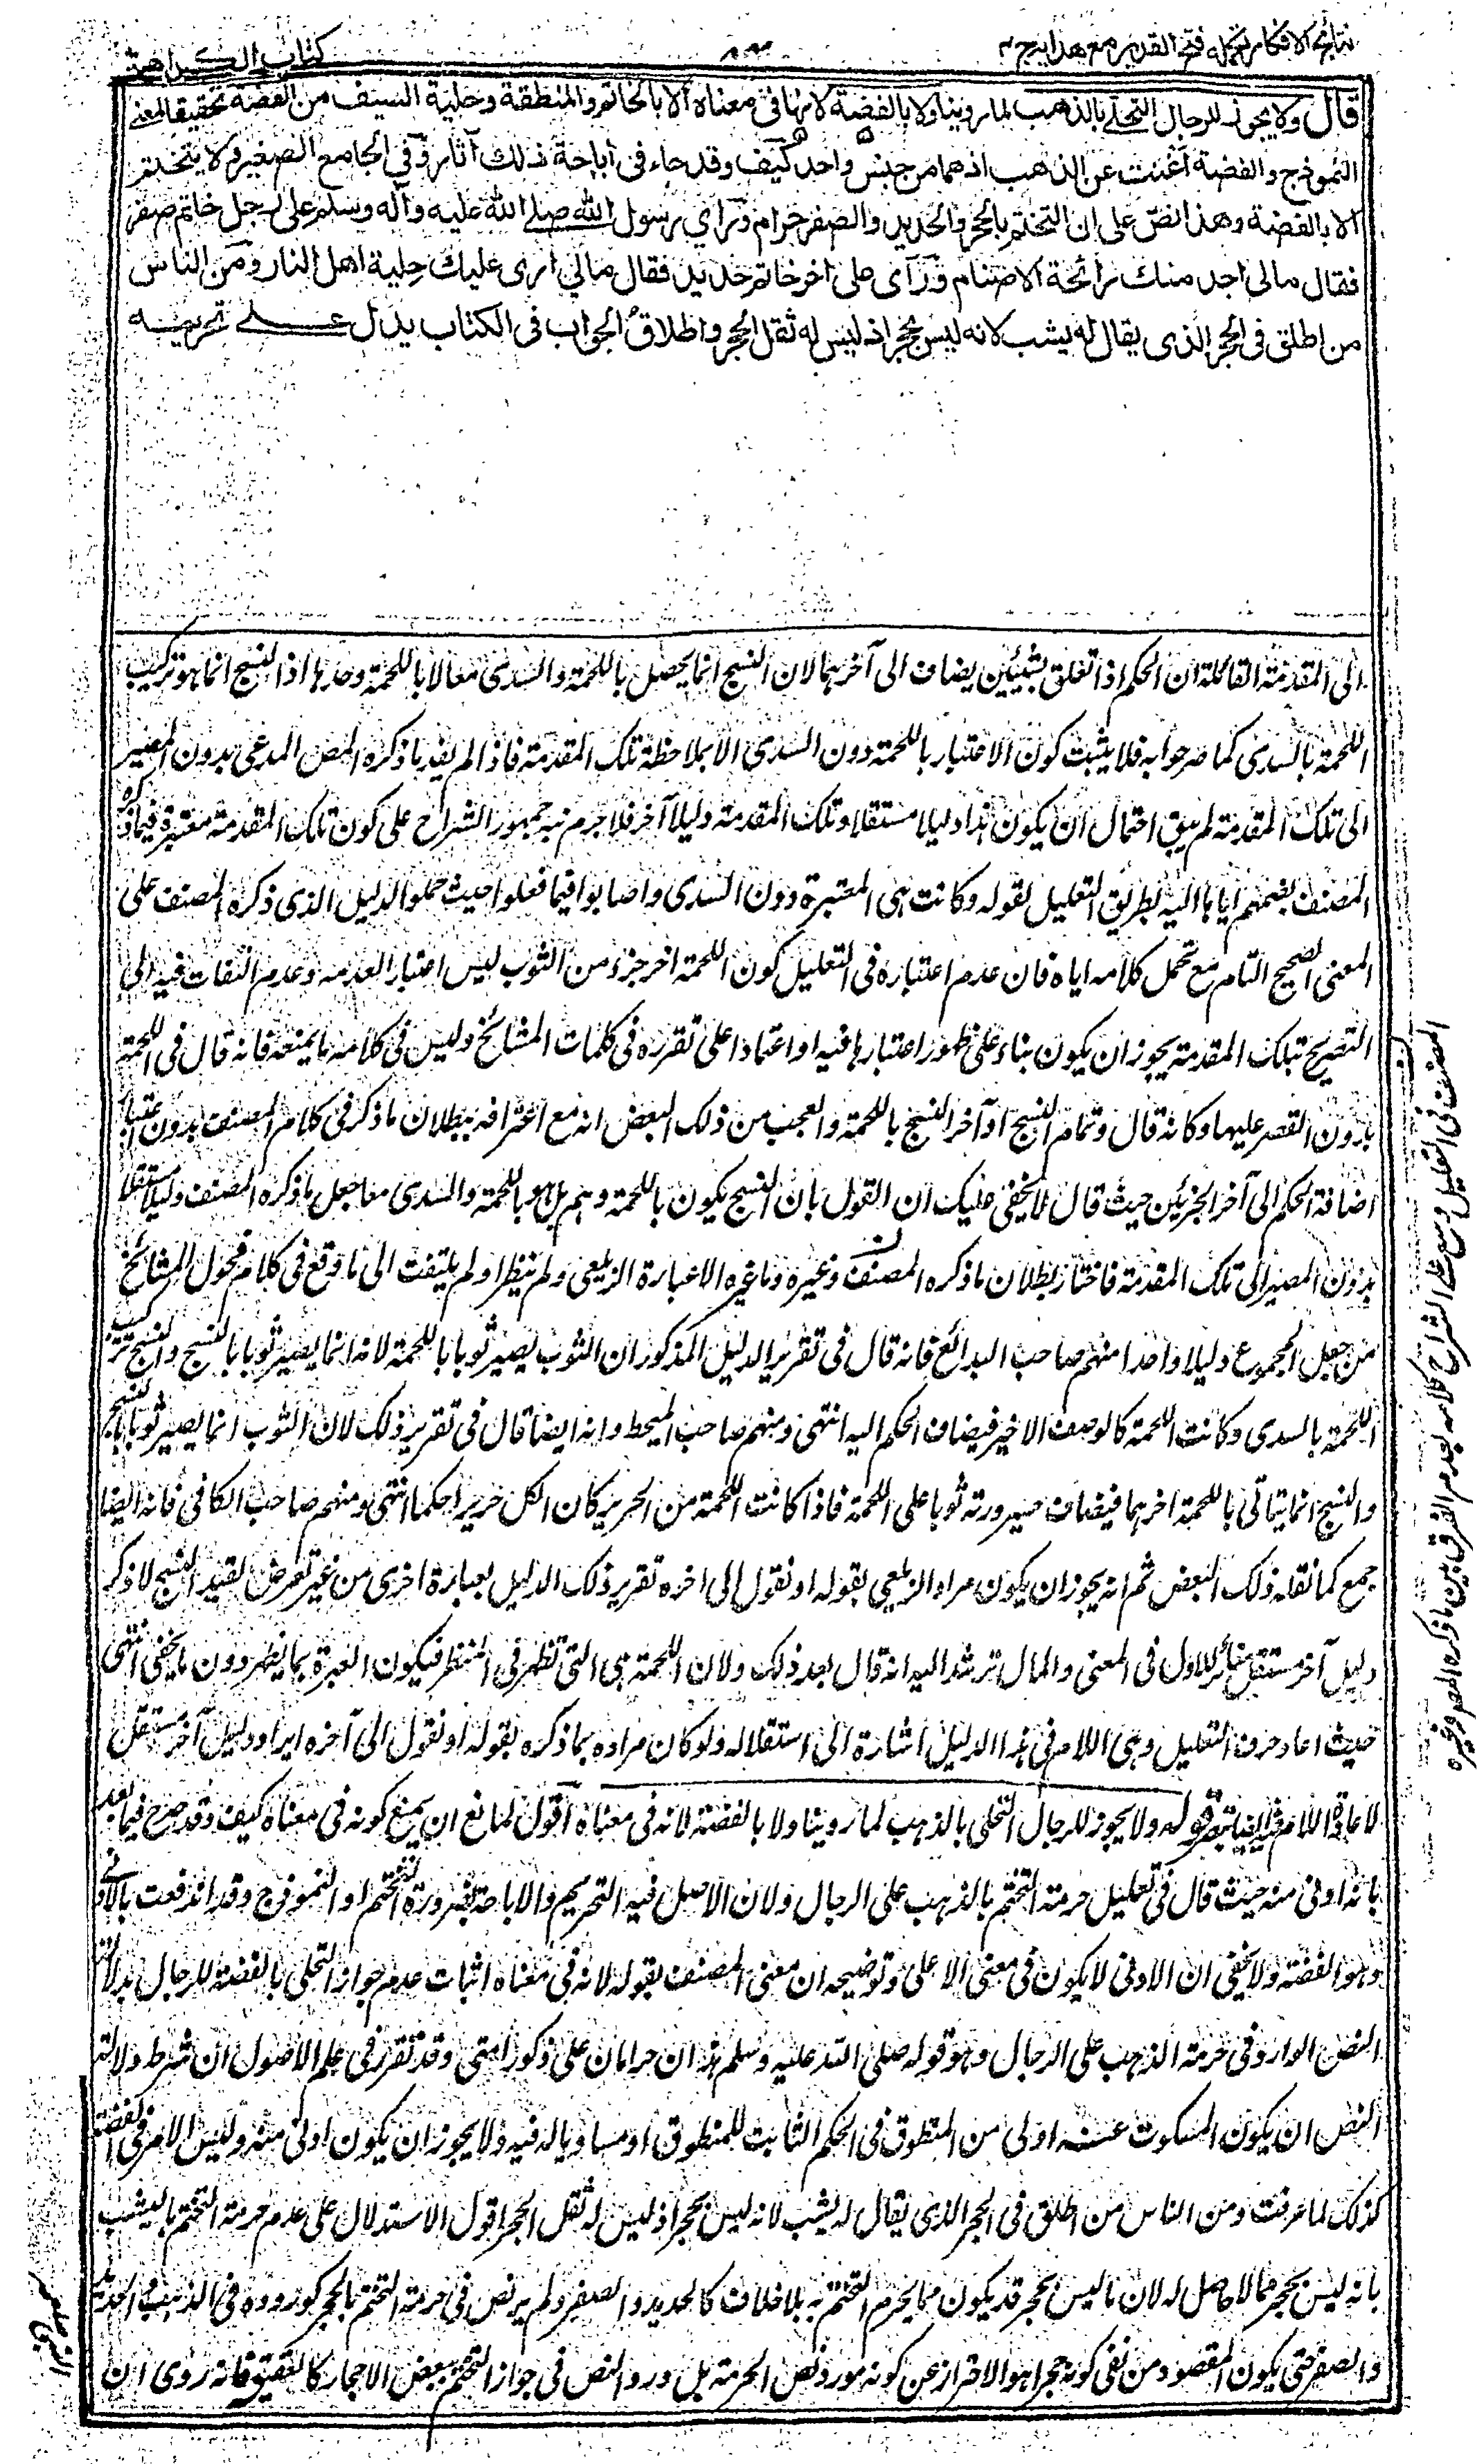 نتائج الافكار تكملة فتح القدير مع هداية ج ٤
كتاب الكراهية
قال ولا يجوز للرجال التحلي بالذهب لما روينا ولا بالفضة لانها في معناه الا بالخاتم والمنطقة وحلية السيف من الفضة تحقيقا لمعنى
النموذج والفضة اغنت عن الذهب اذ هما من جنس واحد كيف وقد جاء في اباحة ذلك آثار وفي الجامع الصغير ولا يتختم
الا بالفضة وهذا نص على ان التختم بالحجر والحديد والصفر حرام ورأى رسول الله صلى الله عليه وآله وسلم على رجل خاتم صفر
فقال مالي اجد منك رائحة الاصنام ورآى على اخر خاتم حديد فقال مالي ارى عليك حلية اهل النار ومن الناس
من اطلق في الحجر الذي يقال له يشب لانه ليس بحجر اذ ليس له ثقل الحجر واطلاق الجواب في الكتاب يدل على تحريمه
الى المقدمة القائلة ان الحكم اذا تعلق بشيئين يضاف الى آخرهما لان النسج انما يحصل باللحمة والسدى معا لا باللحمة وحدها اذ النسج انما هو تركيب
اللحمة بالسدى كما صرحوا به فلا يثبت كون الاعتبار باللحمة دون السدى الا بملاحظة تلك المقدمة فاذا لم يفد ما ذكره المص المدعى بدون المصير
الى تلك المقدمة لم يبق احتمال ان يكون هذا دليلا مستقلا وتلك المقدمة دليلا آخر فلا جرم نبه جمهور الشراح على كون تلك المقدمة معتبرة فيما ذكره
المصنف بضمهم اياها اليه بطريق التعليل لقوله وكانت هي المعتبرة دون السدى واصابوا فيما فعلوا حيث حملوا الدليل الذي ذكره المصنف على
المعنى الصحيح التام مع تحمل كلامه اياه فان عدم اعتباره في التعليل كون اللحمة اخر جزء من الثوب ليس اعتبارا لعدمه وعدم التفات فيه الى
التصريح بتلك المقدمة يجوز ان يكون بناء على ظهور اعتبارها فيه او اعتمادا على تقرره في كلمات المشائخ وليس في كلامه ما يمنعه فانه قال في اللحمة
بدون القصر عليها وكانه قال وتمام النسج او آخر النسج باللحمة والعجب من ذلك البعض انه مع اعترافه ببطلان ما ذكر في كلام المصنف بدون اعتبار
اضافة الحكم الى آخر الجزئين حيث قال لا يخفى عليك ان القول بان النسج يكون باللحمة وهم بل هو باللحمة والسدى معا جعل ما ذكره المصنف دليلا مستقلا
بدون المصير الى تلك المقدمة فاختار بطلان ما ذكره المصنف وغيره وما غيره الا عبارة الزيلعي ولم ينظر او لم يلتفت الى ما وقع في كلام فحول المشائخ
من جعل المجموع دليلا واحدا منهم صاحب البدائع فانه قال في تقرير الدليل المذكور ان الثوب يصير ثوبا باللحمة لانه انما يصير ثوبا بالنسج والنسج تركيب
اللحمة بالسدى وكانت اللحمة كالوصف الاخير فيضاف الحكم اليه انتهى ومنهم صاحب المحيط وانه ايضا قال في تقرير ذلك لان الثوب انما يصير ثوبا بالنسج
والنسج انما يتاتى باللحمة اخرهما فيضاف صيرورته ثوبا على اللحمة فاذا كانت اللحمة من الحرير كان الكل حريرا حكما انتهى ومنهم صاحب الكافي فانه ايضا
جمع كما نقله ذلك البعض ثم انه يجوز ان يكون مراد الزيلعي بقوله او نقول الى اخره تقرير ذلك الدليل بعبارة اخرى من غير تعرض لقيد النسج لا ذكر
دليل آخر مستقل مغائر للاول في المعنى والمال ترشد اليه انه قال بعد ذلك ولان اللحمة هي التي تظهر في المنظر فيكون العبرة بما يظهر دون ما يخفى انتهى
حيث اعاد حرف التعليل وهي اللام في هذا الدليل اشارة الى استقلاله ولو كان مراده بما ذكره بقوله او نقول الى آخره ايراد دليل آخر مستقل
لاعاد اللام فيه ايضا تبصر قوله ولا يجوز للرجال التحلي بالذهب لما روينا ولا بالفضة لانه في معناه اقول لمانع ان يمنع كونه في معناه كيف وقد صرح فيما بعد
بانه ادنى منه حيث قال في تعليل حرمة التختم بالذهب على الرجال ولان الاصل فيه التحريم والاباحة بضرورة التختم او النموذج وقد اندفعت بالادنى
وهو الفضة ولا يخفى ان الادنى لا يكون في معنى الاعلى وتوضيحه ان معنى المصنف بقوله لانه في معناه اثبات عدم جواز التحلي بالفضة للرجال بدلالة
النص الوارد في حرمة الذهب على الرجال وهو قوله صلى الله عليه وسلم هذان حرامان على ذكور امتي وقد تقرر في علم الاصول ان شرط دلالة
النص ان يكون المسكوت عنه اولى من المنطوق في الحكم الثابت للمنطوق او مساويا له فيه ولا يجوز ان يكون ادنى منه وليس الامر في الفضة
كذلك لما عرفت ومن الناس من اطلق في الحجر الذي يقال له يشب لانه ليس بحجر اذ ليس له ثقل الحجر اقول الاستدلال على عدم حرمة التختم باليشب
بانه ليس بحجر مما لا حاصل له لان ما ليس بحجر قد يكون مما يحرم التختم به بلا خلاف كالحديد والصفر ولم يرد نص في حرمة التختم بالحجر كوروده في الذهب والحديد
والصفر حتى يكون المقصود من نفي كونه حجرا هو الاحتراز عن كونه مورد نص الحرمة بل ورد النص في جواز التختم ببعض الاحجار كالعقيق فانه روى ان
المصنف في التعليل وسوق الشراح كلامه بعدم الفرق بين ما ذكره المص وغيره